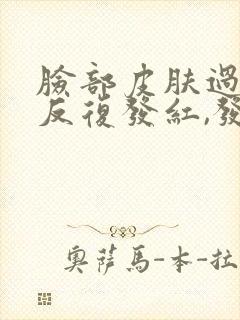 臉部皮肤過
反復發紅,發
奧薩馬-本-拉